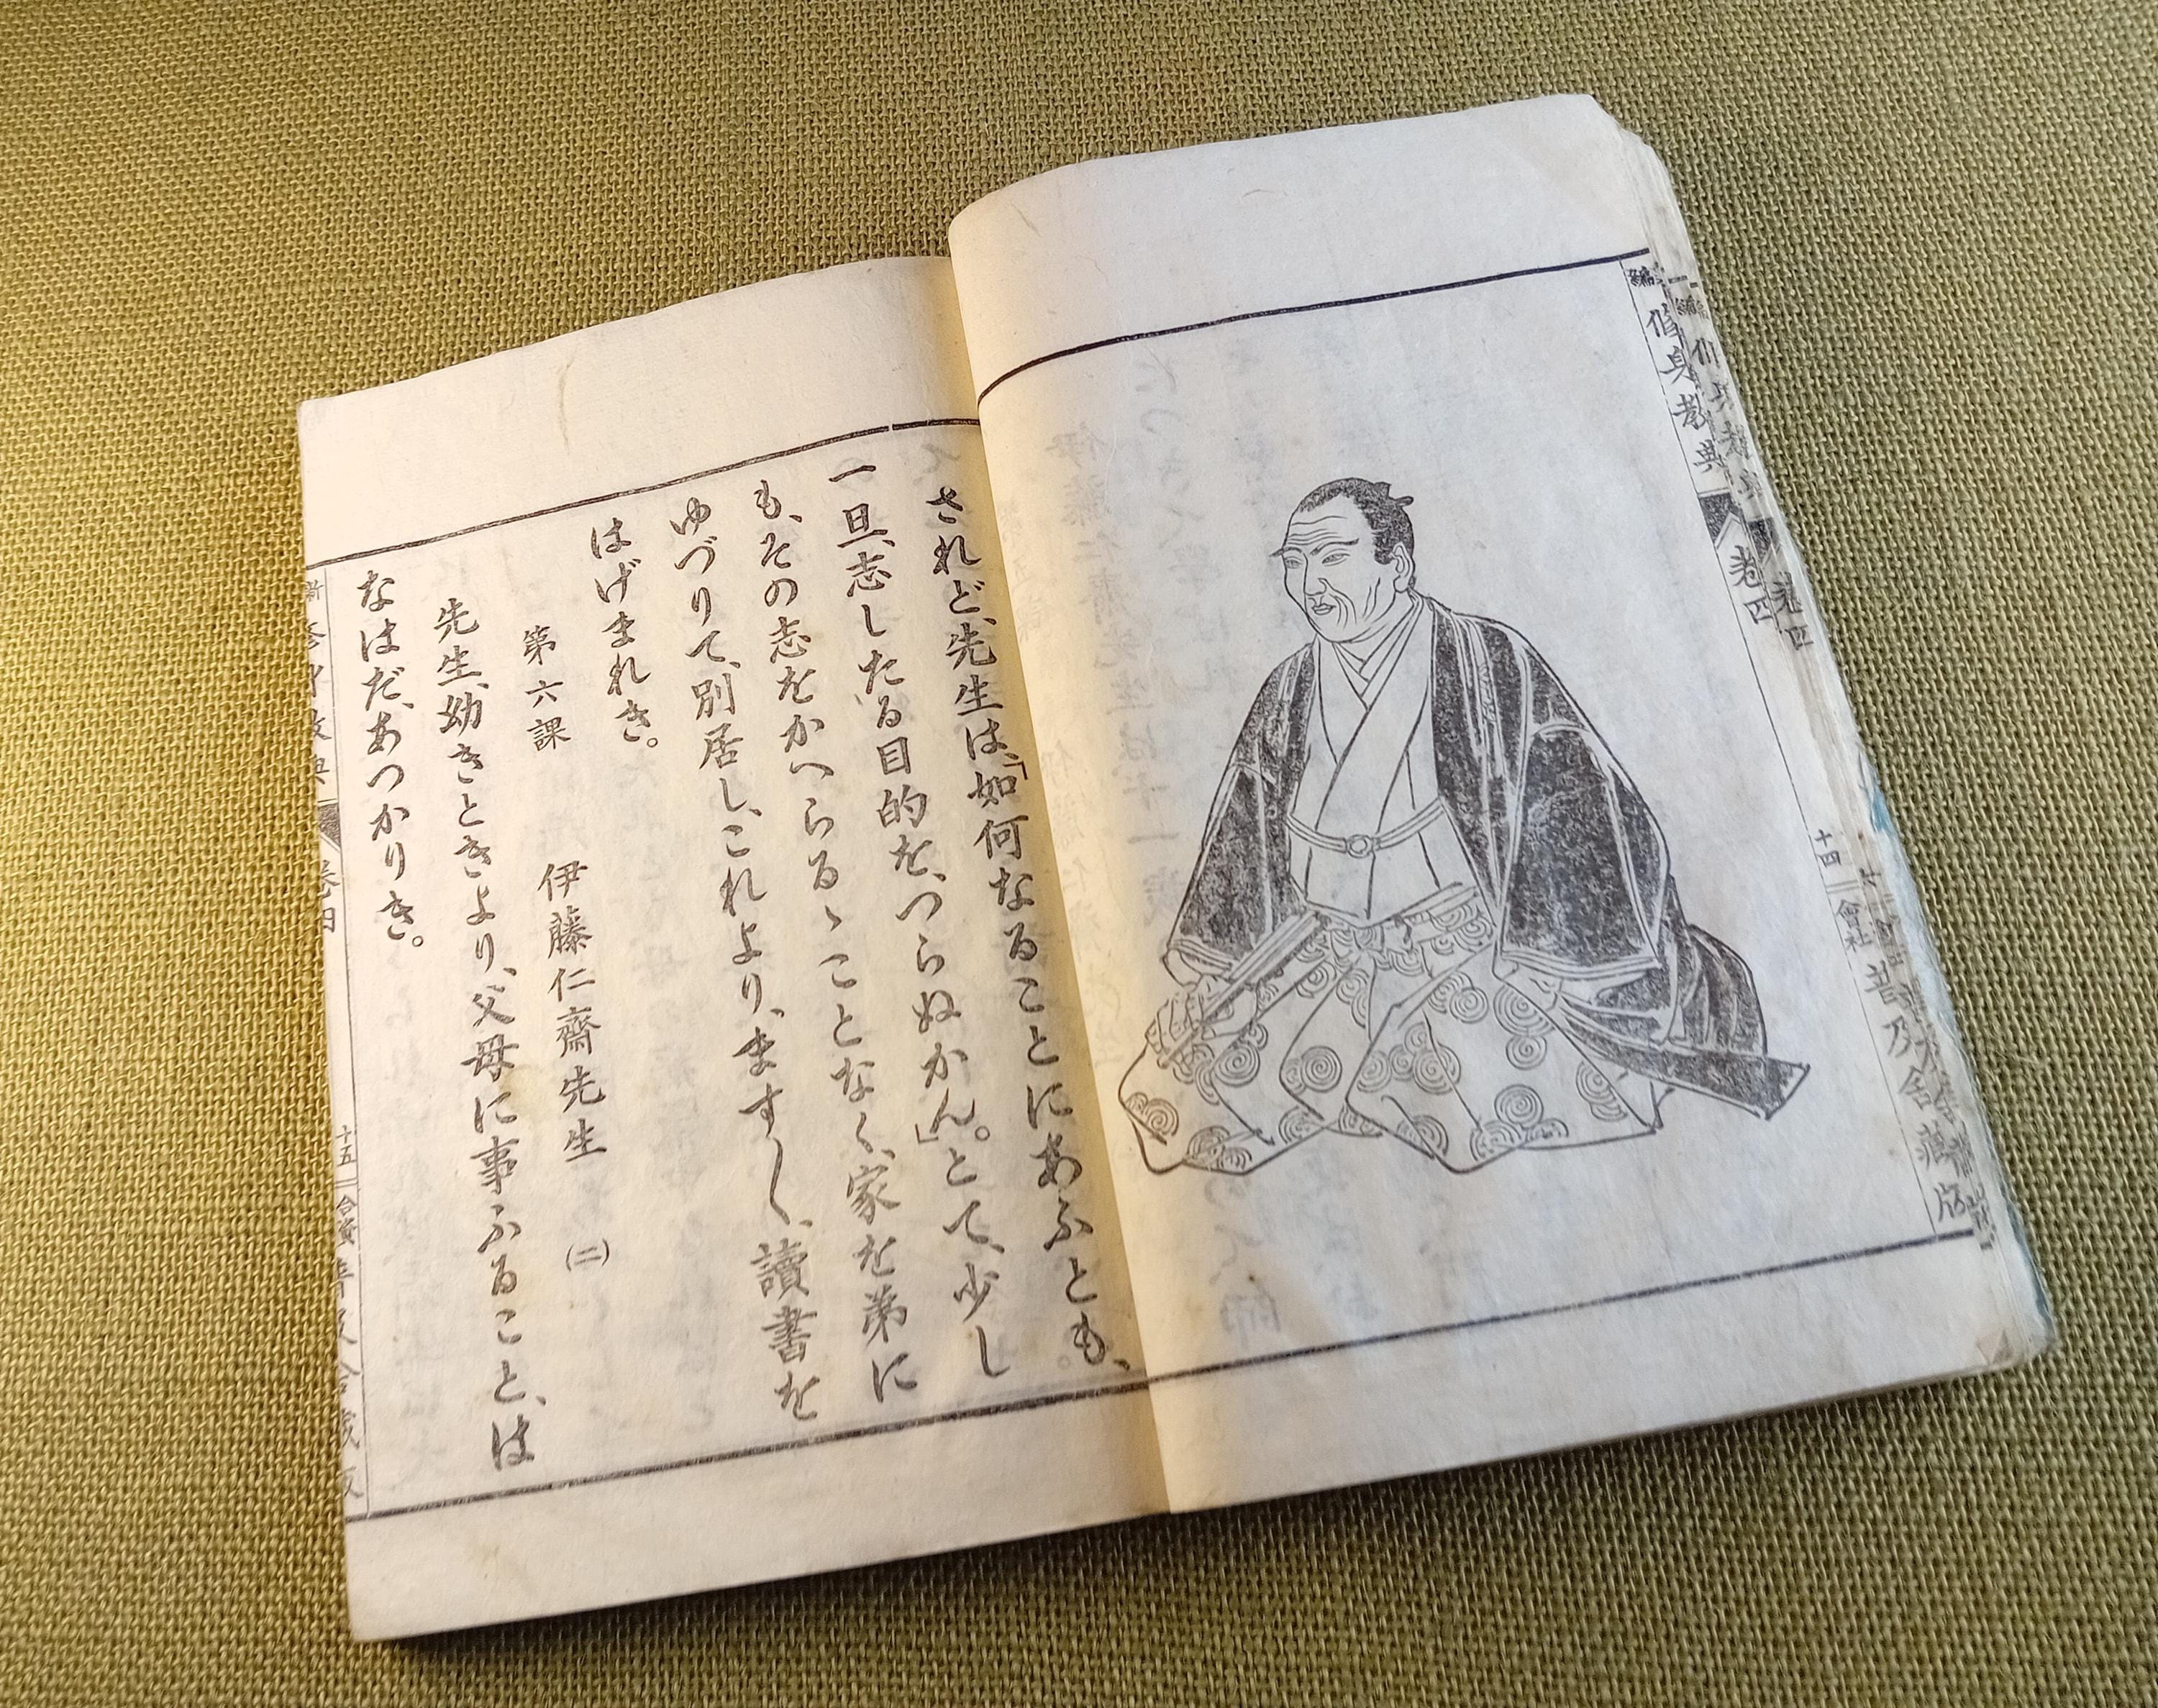 修身教典
卷四
十四
會社普及舍藏版
されど、先生は、「如何なることにあふとも、
一旦、志したる目的を、つらぬかん。」とて、少し
も、その志をかへらるゝことなく、家を弟に
ゆづりて、別居し、これより、ますく、讀書を
はげまれき。
第六課　伊藤仁齋先生　(二)
先生、幼きときより、父母に事ふること、は
なはだ、あつかりき。
十五
合資